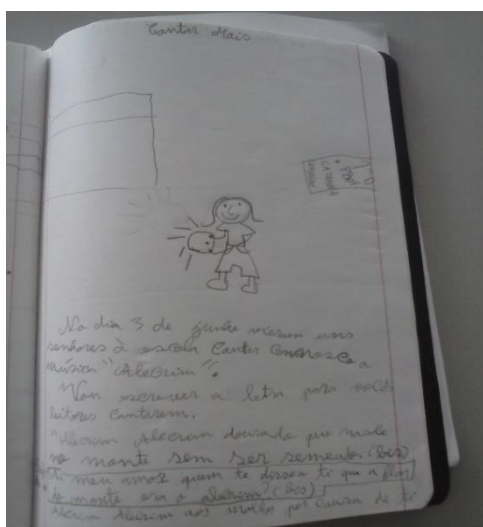 Cantar Mais
No dia 3 de junho vieram uns
senhores à escola Cantar connosco a
música "Alecrim".
Vou escrever a letra para vocês
leitores cantarem.
"Alecrim Alecrim dourado que nasce
no monte sem ser semeado. (bis)
meu amor quem te disse a ti que a flor
do monte era o alecrim? (bis)
Alecrim Alecrim aos molhos por causa de ti